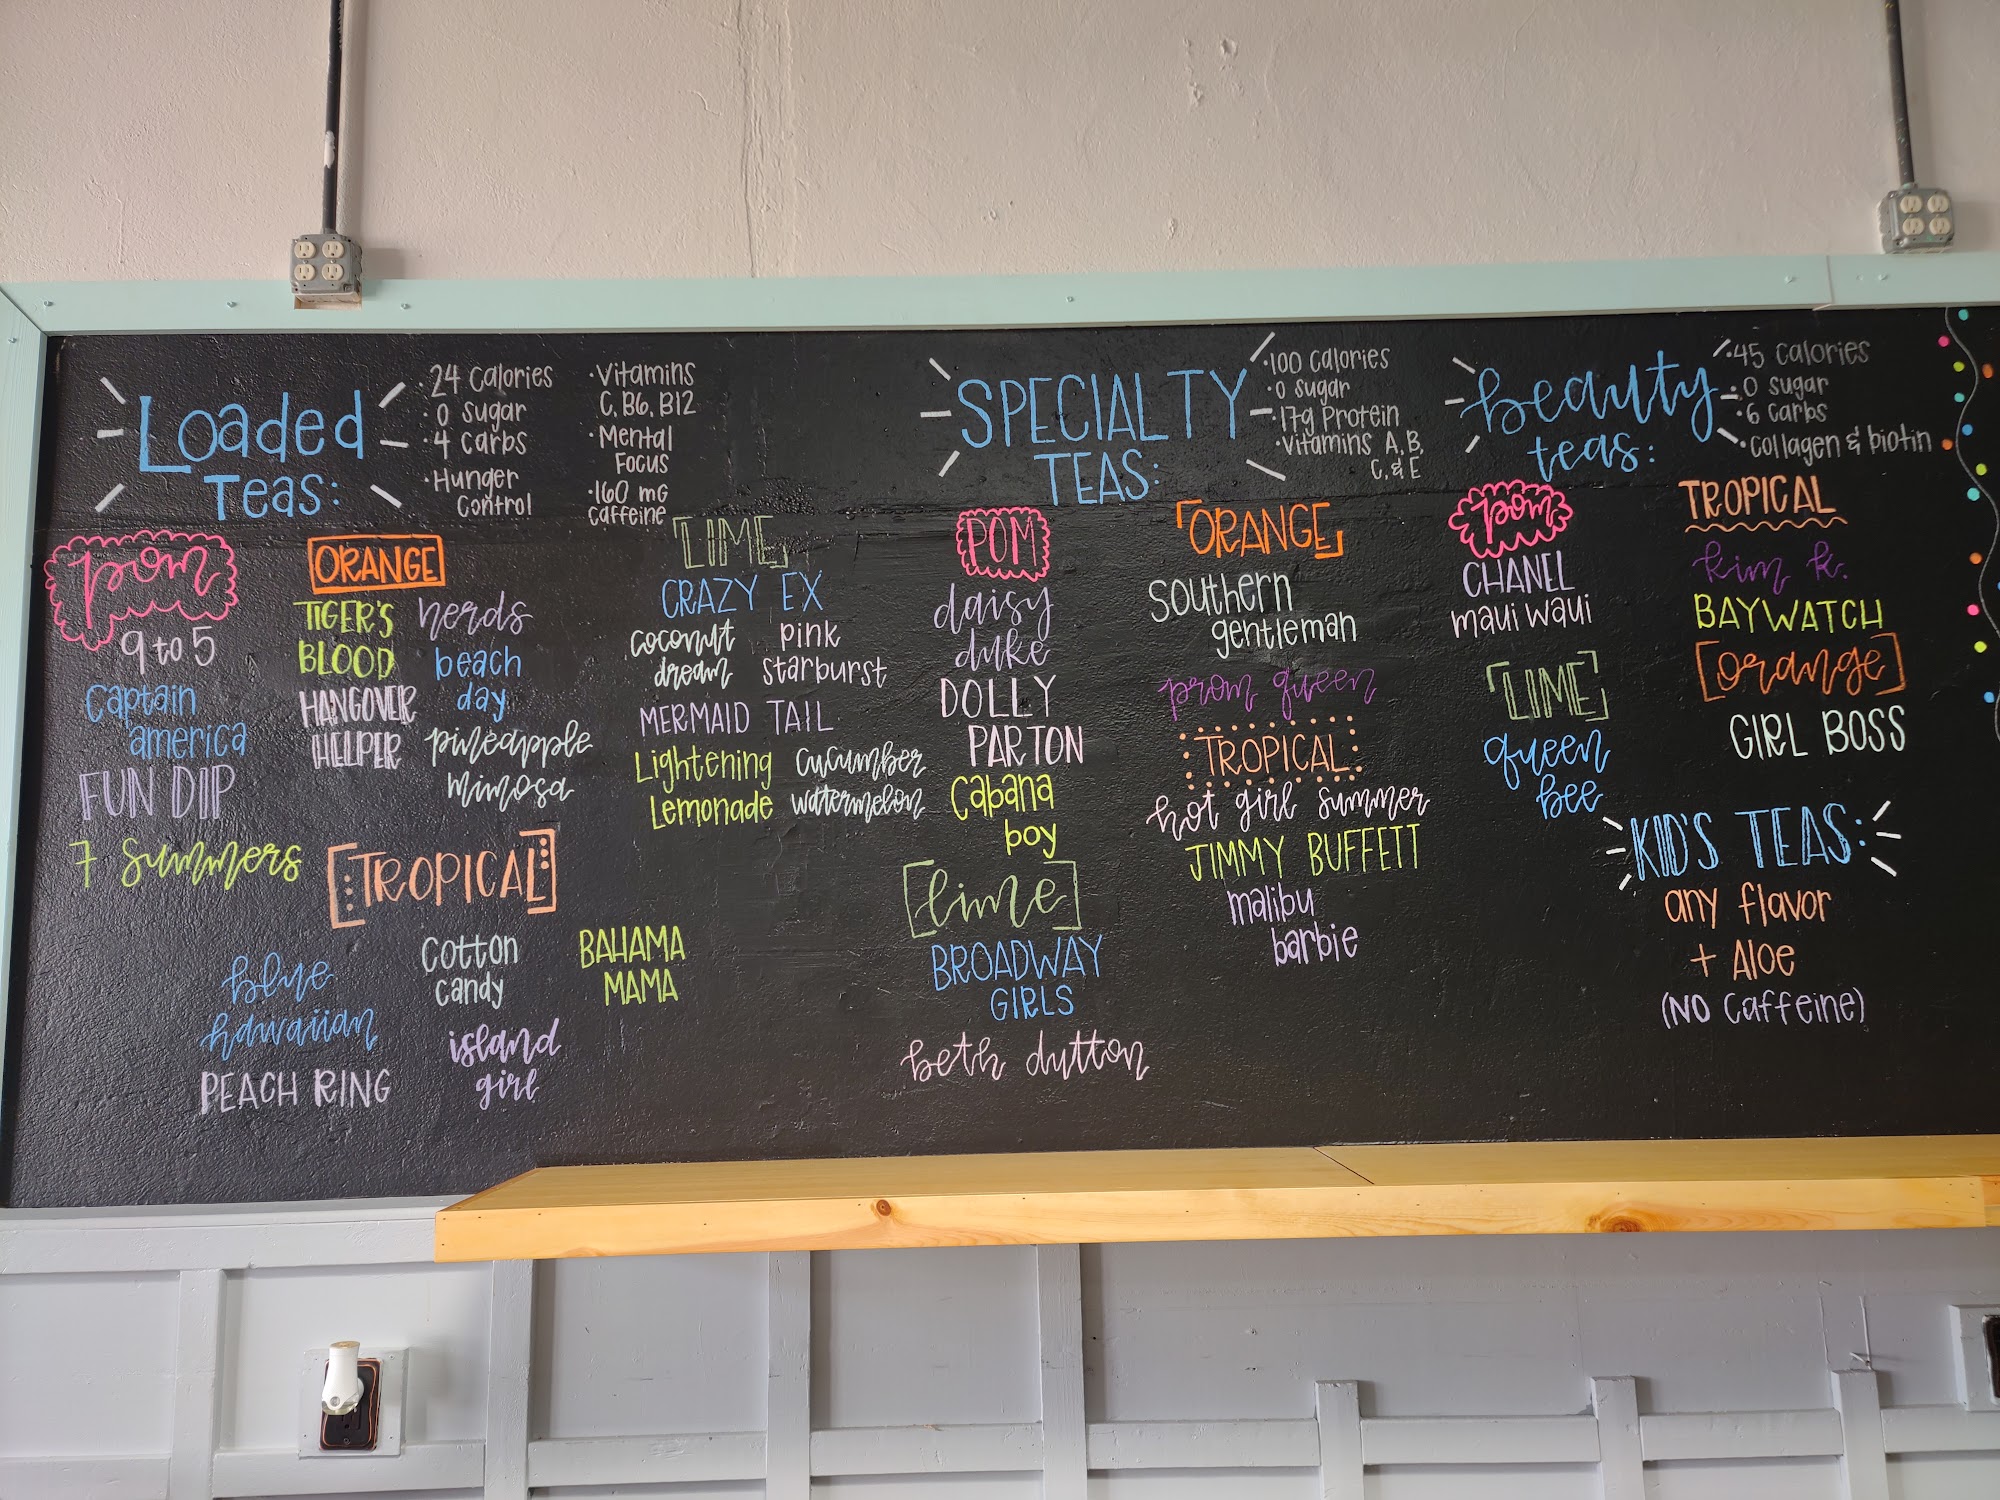 Loaded
Teas:
· 24 Calories
· 0 Sugar
· 4 Carbs
· Hunger
Control
· Vitamins
C, B6, B12
· Mental
Focus
· 160 mg
Caffeine
pom
9 to 5
Captain
america
FUN DIP
7 Summers
ORANGE
TIGER'S
BLOOD
HANGOVER
HELPER
nerds
beach
day
pineapple
mimosa
LIME
CRAZY EX
coconut
dream
pink
starburst
MERMAID TAIL
Lightening
Lemonade
cucumber
watermelon
[TROPICAL]
blue
hawaiian
PEACH RING
Cotton
candy
island
girl
BAHAMA
MAMA
SPECIALTY
TEAS:
· 100 Calories
· 0 sugar
· 17g Protein
· Vitamins A, B,
C, & E
POM
daisy
duke
DOLLY
PARTON
Cabana
boy
[lime]
BROADWAY
GIRLS
beth dutton
ORANGE
Southern
gentleman
prom queen
TROPICAL
hot girl summer
JIMMY BUFFETT
malibu
barbie
beauty
teas:
· 45 Calories
· 0 sugar
· 6 carbs
· Collagen & biotin
pom
CHANEL
maui waui
[LIME]
queen
bee
TROPICAL
kim k.
BAYWATCH
[orange]
GIRL BOSS
KID'S TEAS:
any flavor
+ Aloe
(NO Caffeine)